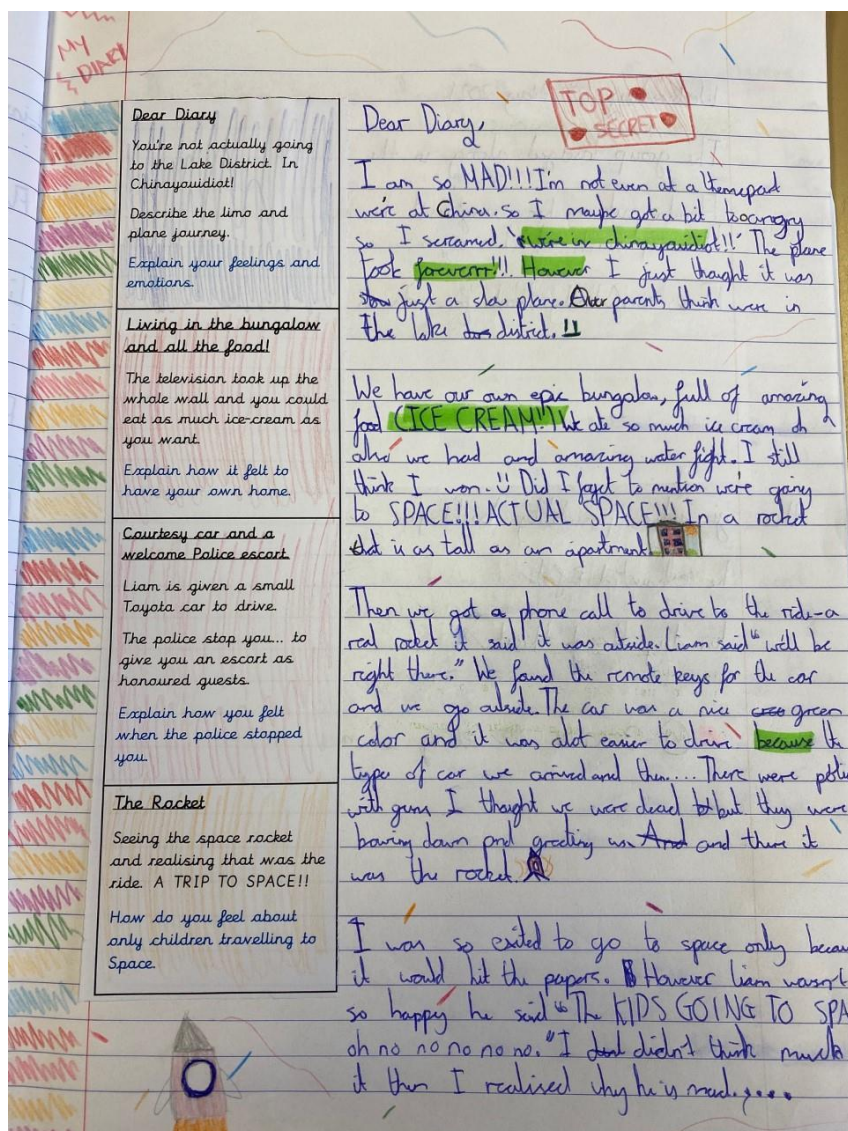 MY
DIARY
Dear Diary
You're not actually going
to the Lake District. In
Chinayouidiot!
Describe the limo and
plane journey.
Explain your feelings and
emotions.
Living in the bungalow
and all the food!
The television took up the
whole wall and you could
eat as much ice-cream as
you want.
Explain how it felt to
have your own home.
Courtesy car and a
welcome Police escort
Liam is given a small
Toyota car to drive.
The police stop you... to
give you an escort as
honoured guests.
Explain how you felt
when the police stopped
you.
The Rocket
Seeing the space rocket
and realising that was the
ride. A TRIP TO SPACE!!
How do you feel about
only children travelling to
Space.
TOP
SECRET
Dear Diary,
I am so MAD!!! I'm not even at a
we're at China. So I maybe got a bit tooangry
so I screamed. "we're in chinayouidiot!!" The plane
took foreverrr!!! However I just thought it was
just a slow plane. Our parents think were in
the lake district. !!
We have our own epic bungalow, full of amazing
food (ICE CREAM!!) We ate so much ice cream oh
also we had and amazing water fight. I still
think I won. Did I forget to mention we're going
to SPACE!!! ACTUAL SPACE!!! In a rocket
that is as tall as an apartment
Then we got a phone call to drive to the ride-a
real rocket it said it was outside. Liam said "we'll be
right there." We found the remote keys for the car
and we go outside. The car was a nice green
color and it was alot easier to drive because the
type of car we arrived and then.... There were
with guns I thought we were dead but they were
bowing down and greeting us and there it
was the rocket.
I was so exited to go to space only
it would hit the papers. However Liam wasn't
so happy he said "The KIDS GOING TO
oh no no no no no." I didn't think much
it then I realised why he is mad.....